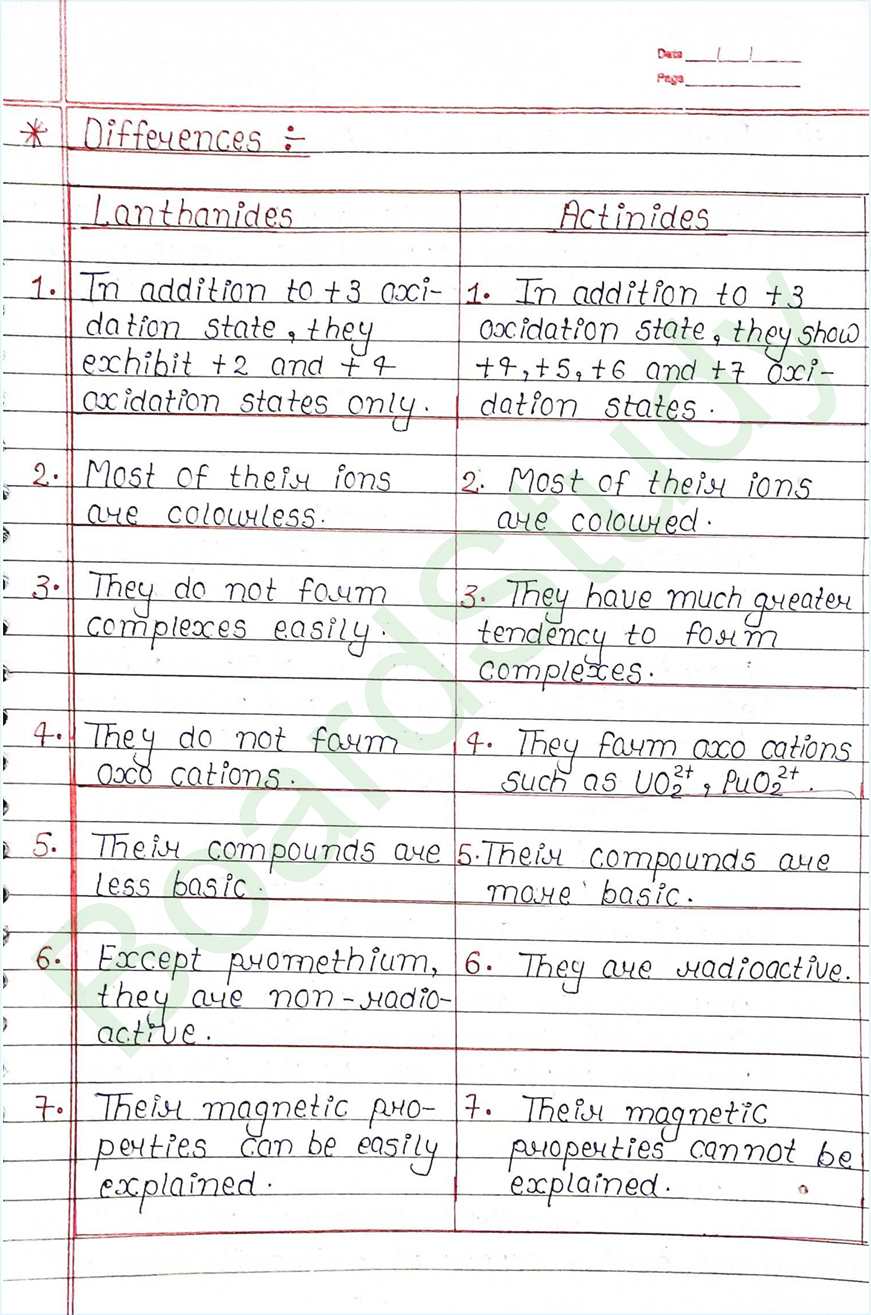 Date
Page
* Differences ÷
Lanthanides
Actinides
1. In addition to +3 oxi-
dation state, they
exhibit +2 and +4
oxidation states only.
1. In addition to +3
oxidation state, they show
+4, +5, +6 and +7 oxi-
dation states.
2. Most of their ions
are colourless.
2. Most of their ions
are coloured.
3. They do not form
complexes easily.
3. They have much greater
tendency to form
complexes.
4. They do not form
oxo cations.
4. They form oxo cations
such as UO₂²⁺, PuO₂²⁺.
5. Their compounds are
less basic.
5. Their compounds are
more basic.
6. Except promethium,
they are non-radio-
active.
6. They are radioactive.
7. Their magnetic pro-
perties can be easily
explained.
7. Their magnetic
properties cannot be
explained.
BoardStudy